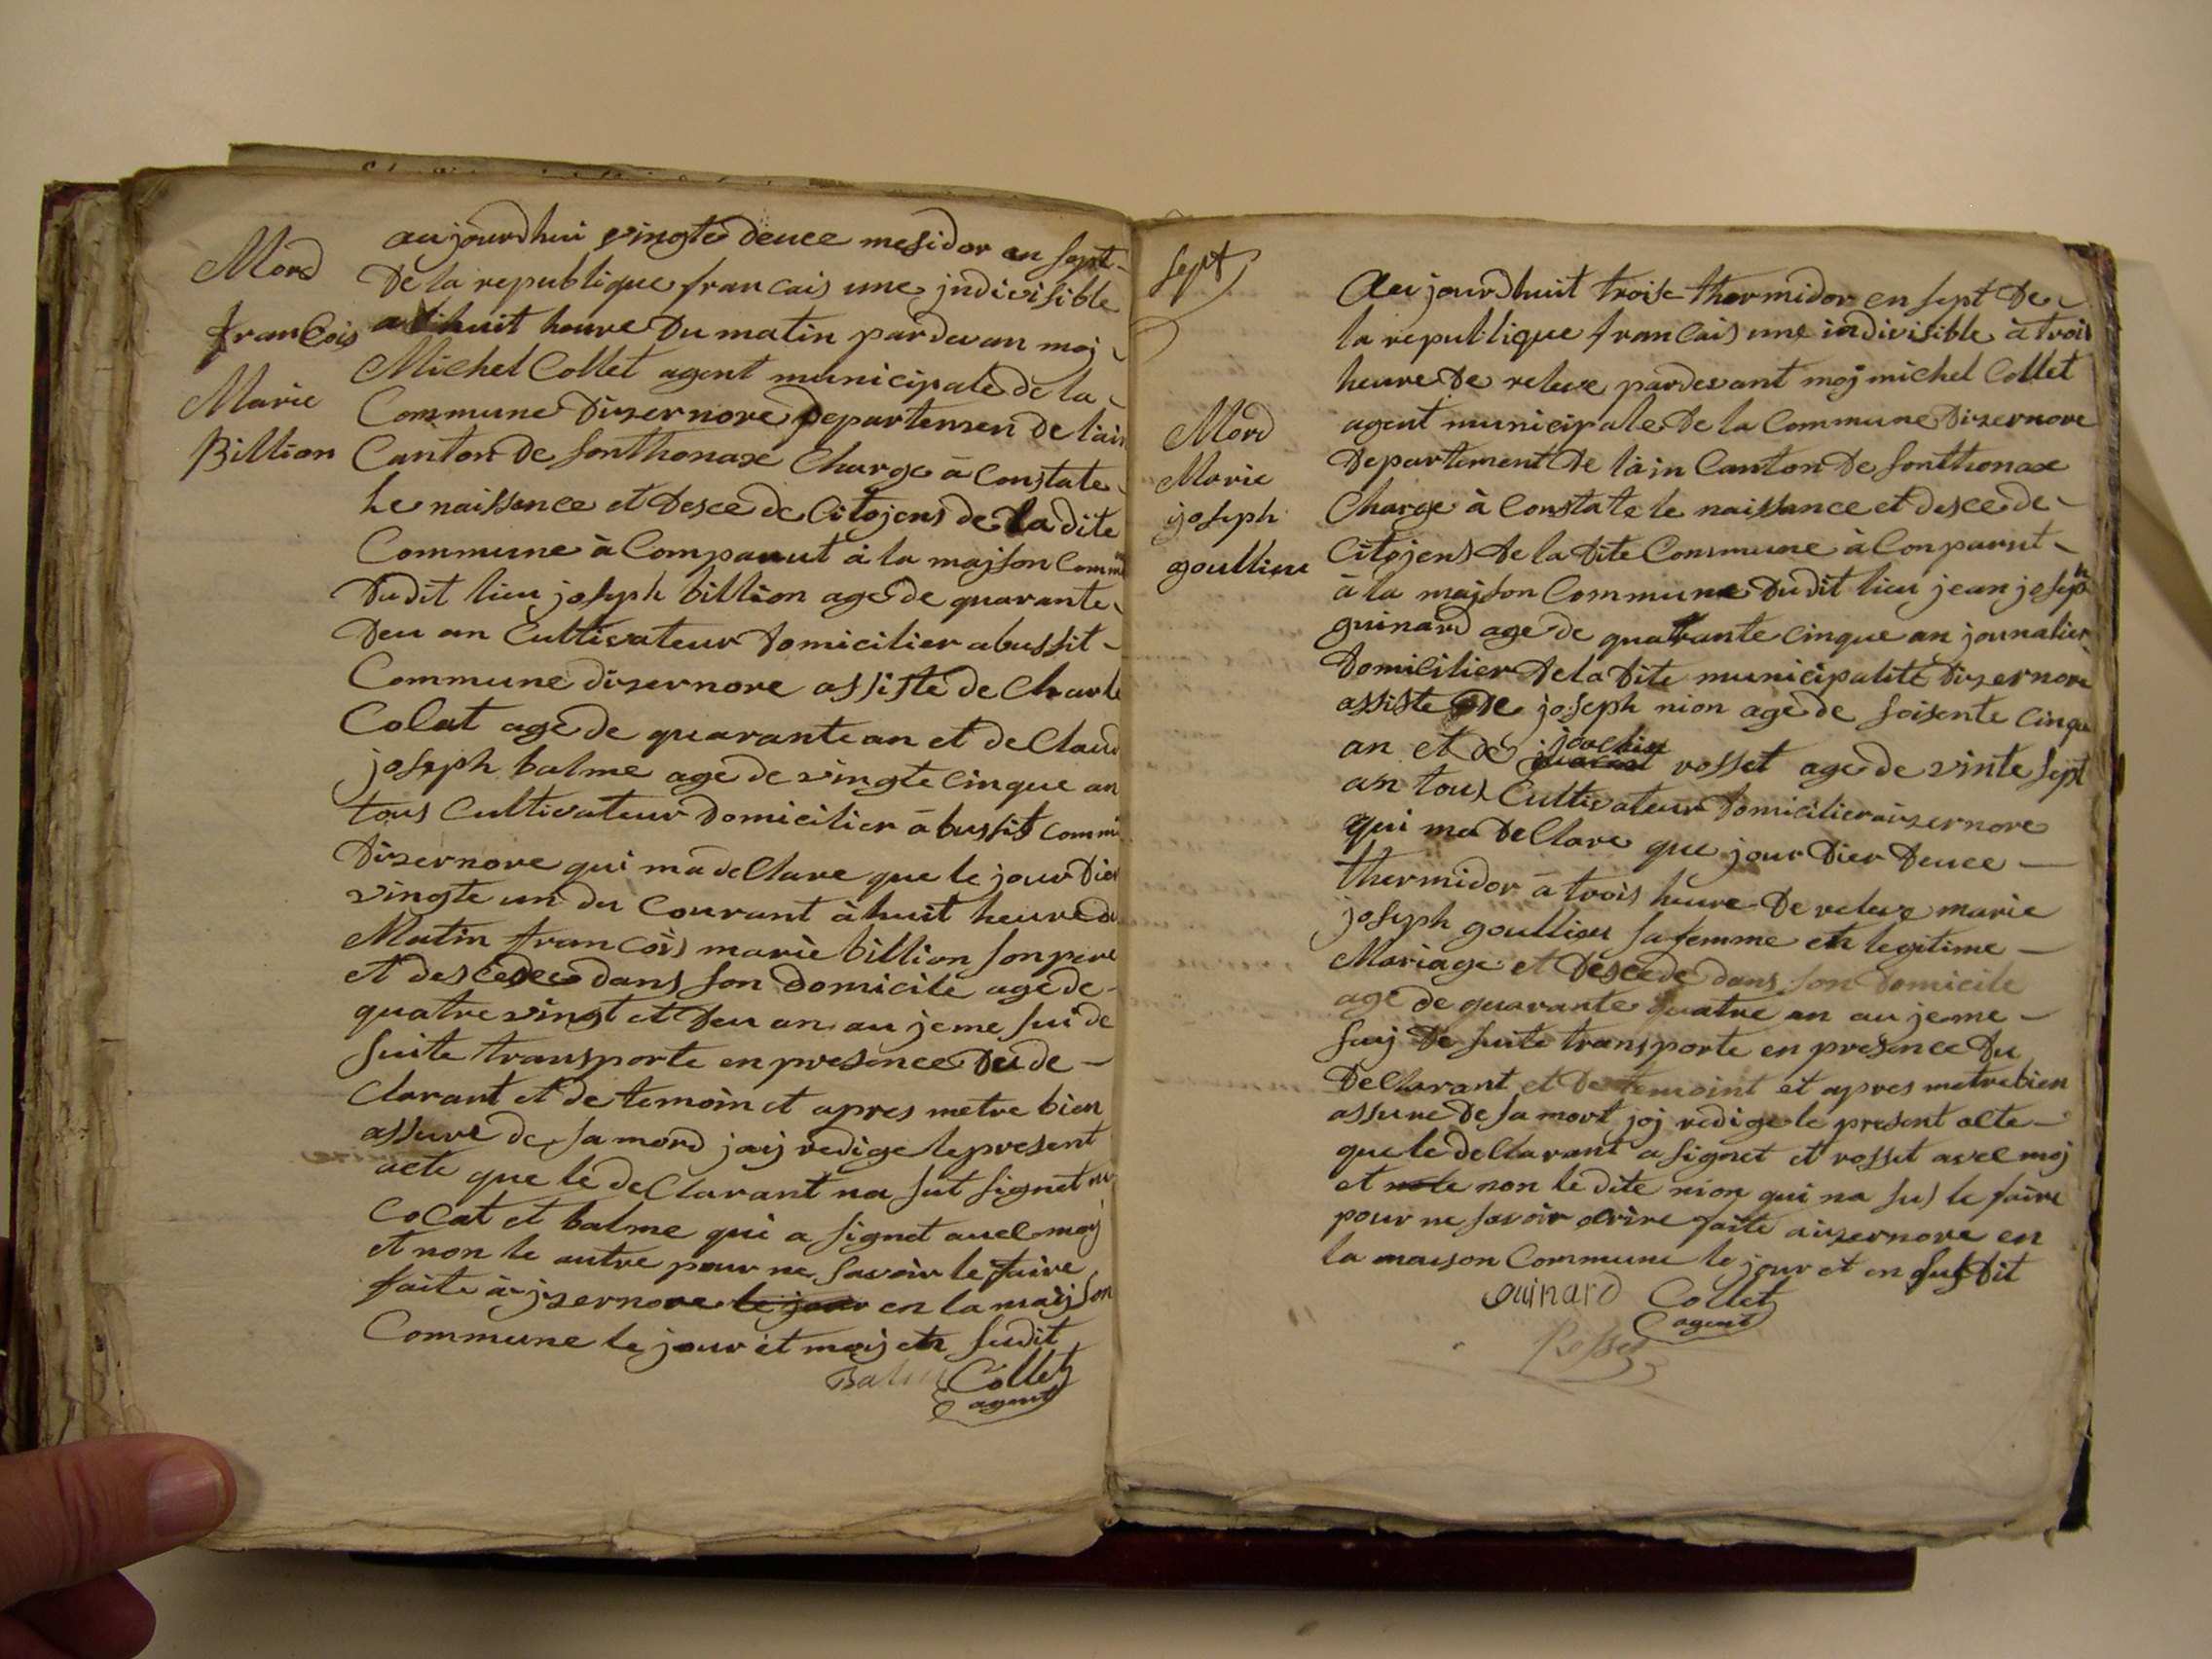 Mord
francois
Marie
Billion
aujourdhui vingte deuce mesidor an sept
De la republique francais une jndivisible
a huit heure Du matin pardevan moj
Michel Collet agent municipale de la
Commune Dizernore Departemen de lain
Canton de sonthonax Charge à Constate
le naissence et Desce de Citojens de la dite
Commune à Comparut à la majson Commu
Dudit lieu joseph billion age de quarante
Deu an Cultivateur Domicilier abussit
Commune dizernore assiste de Charle
Colat age de quarante an et de Claud
joseph balme age de vingte cinque an
tous Cultivateur Domicilier à bussit Commu
Dizernore qui ma deClare que le jour Dier
vingte un du Courant à huit heure du
Matin francois marie billion son pere
et descede dans son Domicile age de
quatre vingt et Deu an au jeme sui de
suite transporte en presence Du de
Clarant et de temoin et apres metre bien
assure de sa mord jaij redige le present
acte que le deClarant na sut signet ni
Colat et balme qui a signet avec moj
et non le autre pour ne savoir le faire
faite à jzernore le jour en la maijson
Commune le jour et moij en sudit
Collet
agent
sept
Mord
Marie
joseph
goullieu
Aujourdhuit troise thermidor en sept De
la republique francais une indivisible à trois
heure De releve pardevant moj michel Collet
agent municipale De la Commune Dizernore
Departement De lain Canton de sonthonax
Charge à Constate le naissance et desce de
Citojens De la Dite Commune à Conparut
à la majson Commune Dudit lieu jean joseph
guinard age de quarante cinque an journalier
Domicilier De la Dite municipalité Dizernore
assiste De joseph nion age de soisente cinque
an et de rosset age de vinte sept
an tous Cultivateur Domicilier aizernore
qui ma DeClare que jour Dier Deuce
thermidor à trois heure De releve marie
joseph goullieu sa femme en legitime
Mariage et Descede dans son Domicile
age de quarante quatre an au jeme
suij De suite transporte en presence Du
DeClarant et De temoint et apres metre bien
assure De sa mort joj redige le present acte
que le deClarant a signet et rosset avec moj
et non le dite nion qui na sus le faire
pour ne savoir ecrire faite aizernore en
la maison Commune le jour et en susdit
Guinard Collet
agent
Rosset